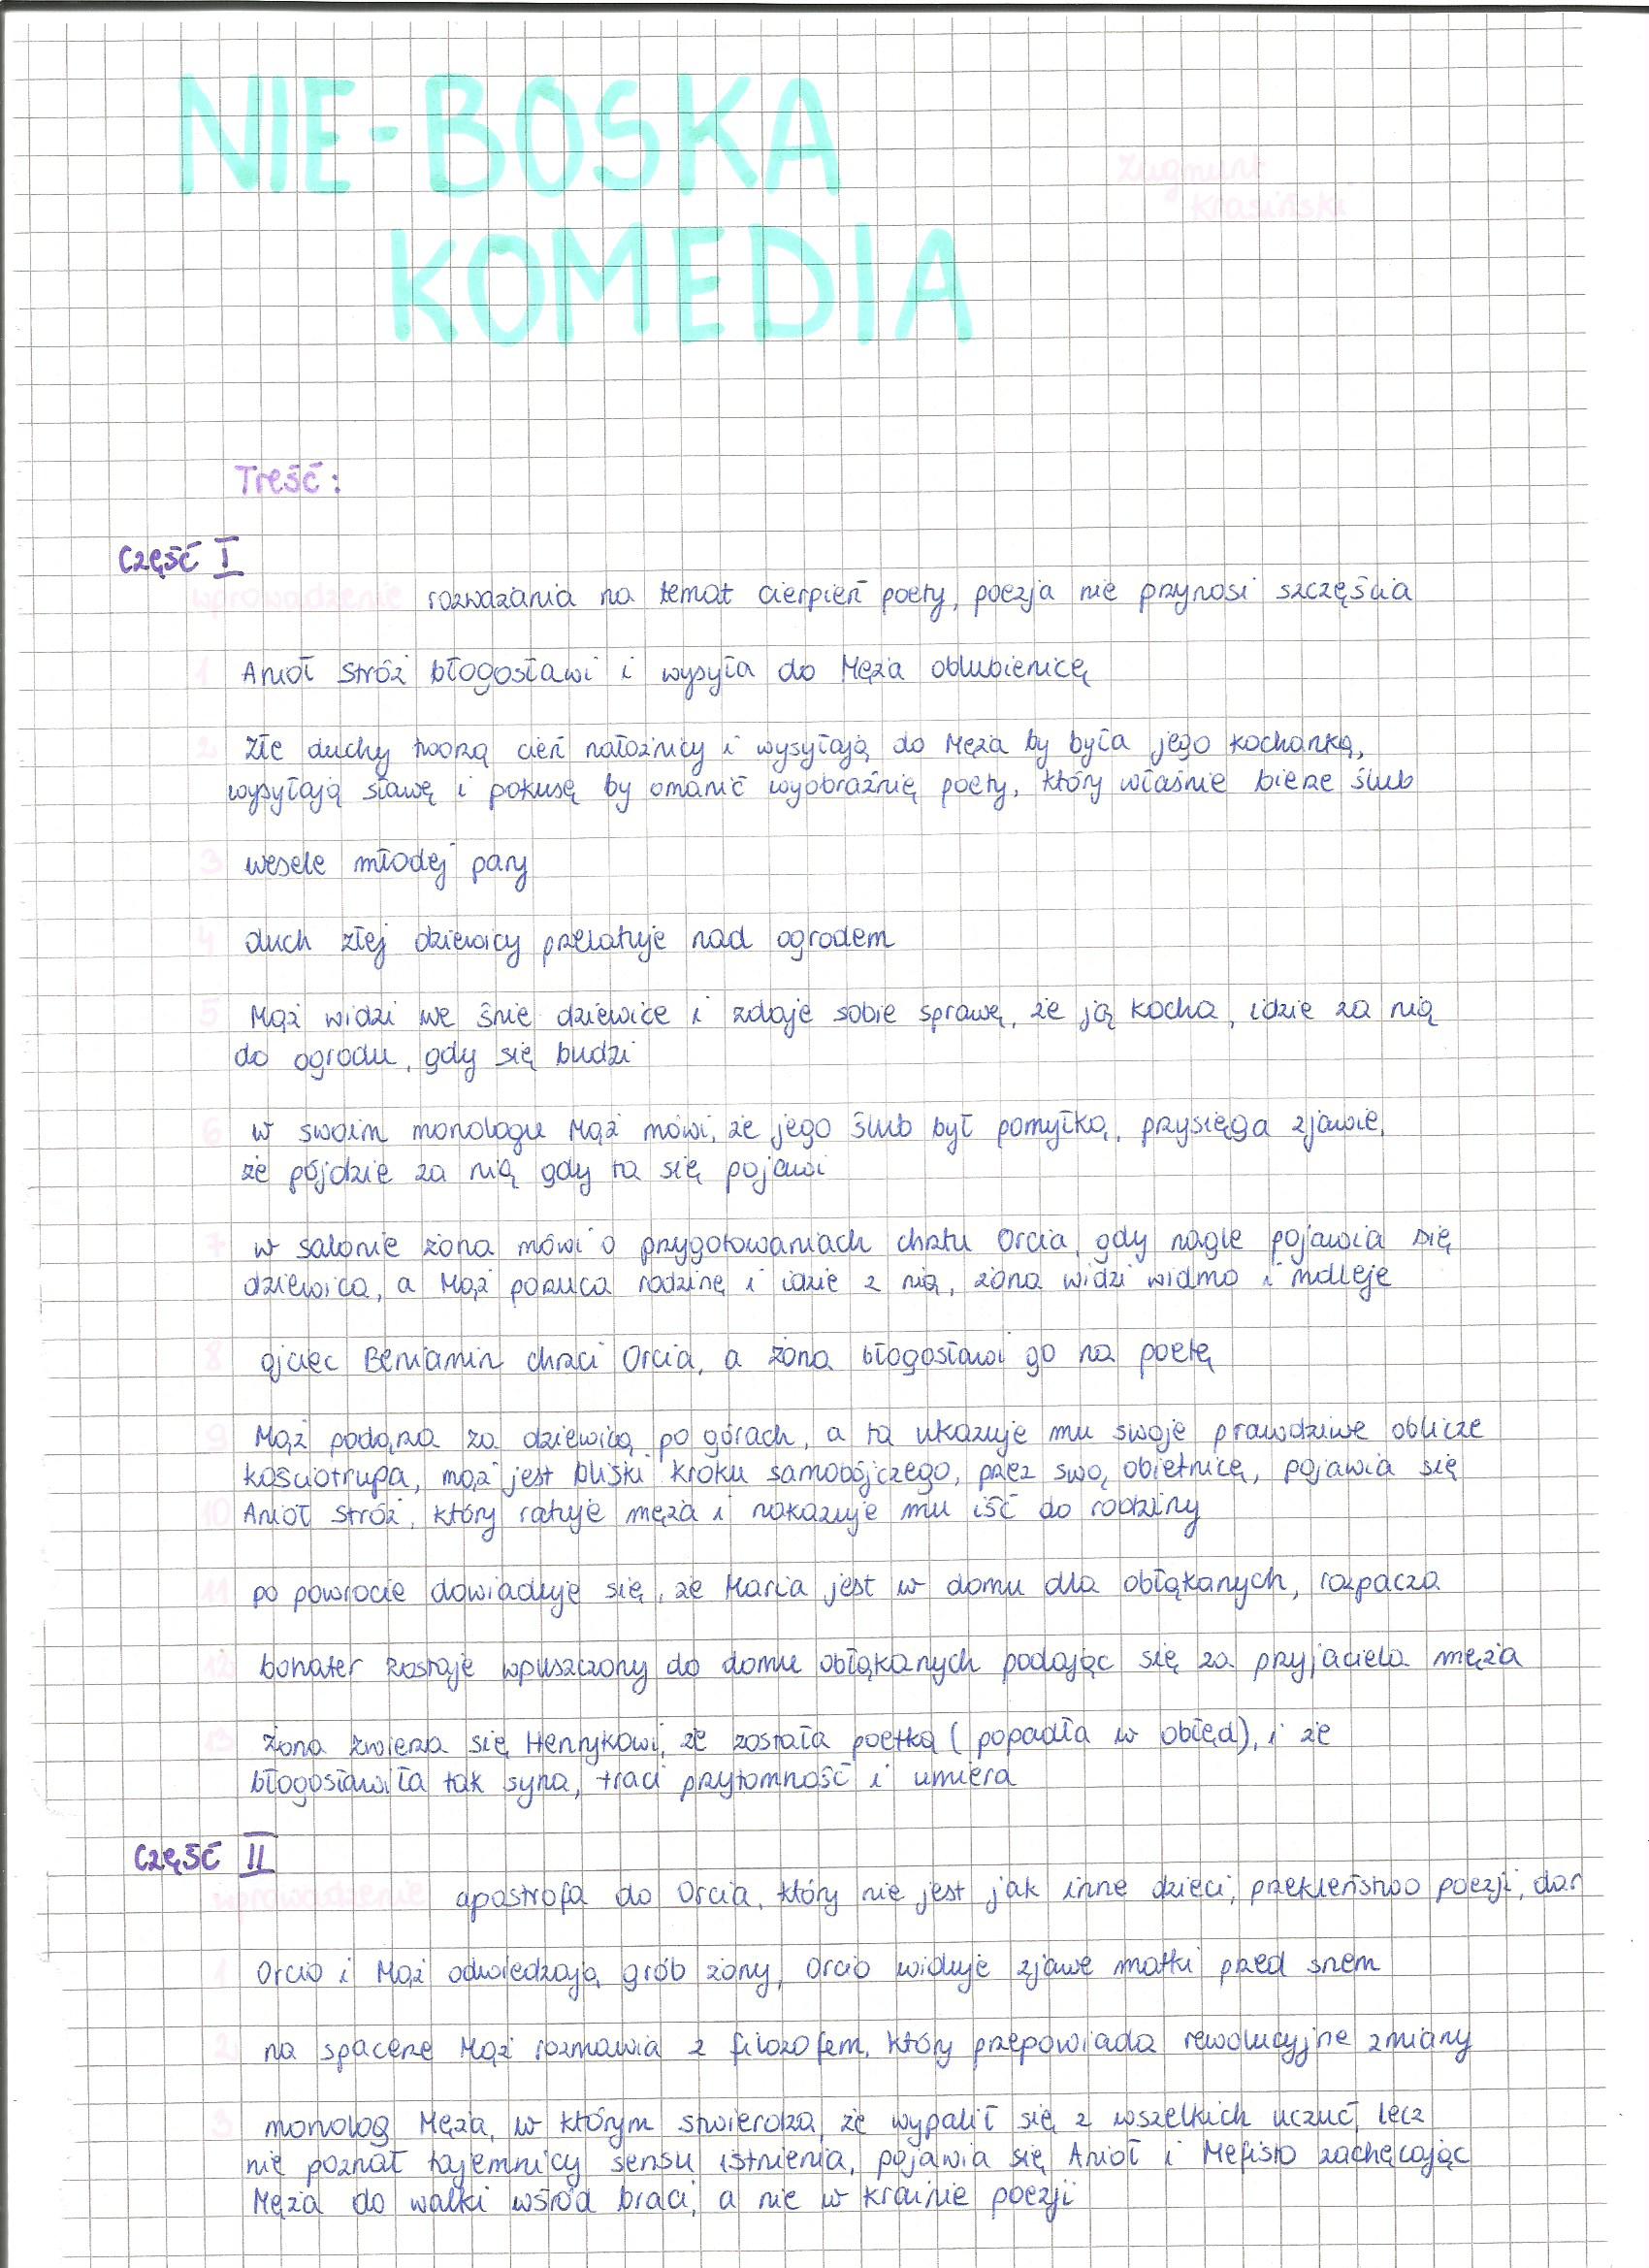 NIE-BOSKA
KOMEDIA
Zygmunt
Krasiński
Treść:
CZĘŚĆ I
wprowadzenie rozważania na temat cierpień poety, poezja nie przynosi szczęścia
1 Anioł Stróż błogosławi i wysyła do Męża oblubienicę
2 złe duchy tworzą cień nałożnicy i wysyłają do Męża by była jego kochanką,
wysyłają sławę i pokusę by omanić wyobraźnię poety, który właśnie bierze ślub
3 wesele młodej pary
4 duch złej dziewicy przelatuje nad ogrodem
5 Mąż widzi we śnie dziewice i zdaje sobie sprawę, że ją kocha, idzie za nią
do ogrodu, gdy się budzi
6 w swoim monologu Mąż mówi, że jego ślub był pomyłką, przysięga zjawie,
że pójdzie za nią gdy ta się pojawi
7 w salonie żona mówi o przygotowaniach chrztu Orcia, gdy nagle pojawia się
dziewica, a Mąż porzuca rodzinę i idzie z nią, żona widzi widmo i mdleje
8 ojciec Beniamin chrzci Orcia, a żona błogosławi go na poetę
9 Mąż podąża za dziewicą po górach, a ta ukazuje mu swoje prawdziwe oblicze
kościotrupa, mąż jest bliski kroku samobójczego, przez swą obietnicę, pojawia się
10 Anioł Stróż, który ratuje męża i nakazuje mu iść do rodziny
11 po powrocie dowiaduje się, że Maria jest w domu dla obłąkanych, rozpacza
12 bohater zostaje wpuszczony do domu obłąkanych podając się za przyjaciela męża
13 żona zwierza się Henrykowi, że została poetką (popadła w obłęd), i że
błogosławiła tak syna, traci przytomność i umiera
CZĘŚĆ II
wprowadzenie apostrofa do Orcia, który nie jest jak inne dzieci, przekleństwo poezji, dar
1 Orcio i Mąż odwiedzają grób żony, Orcio widuje zjawe matki przed snem
2 na spacerze Mąż rozmawia z filozofem, który przepowiada rewolucyjne zmiany
3 monolog Męża, w którym stwierdza, że wypalił się z wszelkich uczuć, lecz
nie poznał tajemnicy sensu istnienia, pojawia się Anioł i Mefisto zachęcając
Męża do walki wśród braci, a nie w krainie poezji